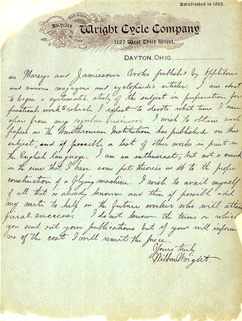 Established in 1892.
Bicycles
Wright Cycle Company
1127 West Third Street.
DAYTON, OHIO.
in Mareys and Jamiesons books published by Appletons
and various magazine and cyclopædic articles. I am about
to begin a systematic study of the subject in preparation for
practical work to which I expect to devote what time I can
spare from my regular business. I wish to obtain such
papers as the Smithsonian Institution has published on this
subject, and if possible a list of other works in print in
the English language. I am an enthusiast, but not a crank
in the sense that I have some pet theories as to the proper
construction of a flying machine. I wish to avail myself
of all that is already known and then if possible add
my mite to help on the future worker who will attain
final success. I do not know the terms on which
you send out your publications but if you will inform
me of the cost I will remit the price.
Yours truly,
Wilbur Wright